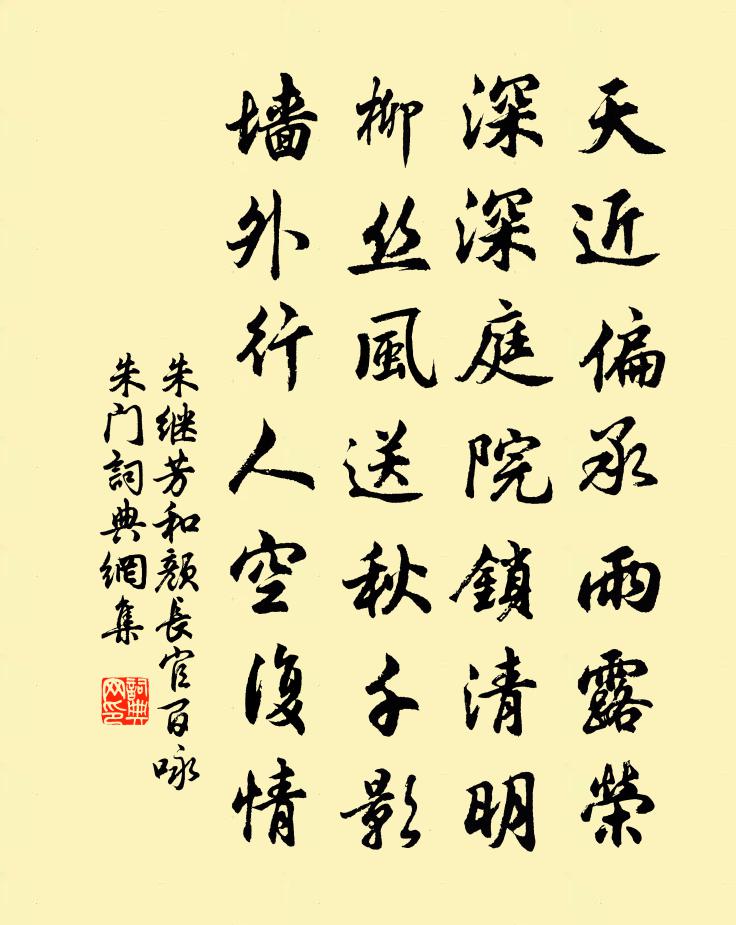 天近偏承雨露榮
深深庭院鎖清明
柳丝風送秋千影
墙外行人空復情
朱继芳和颜長官百咏
朱门詞典網集
詞典
网印